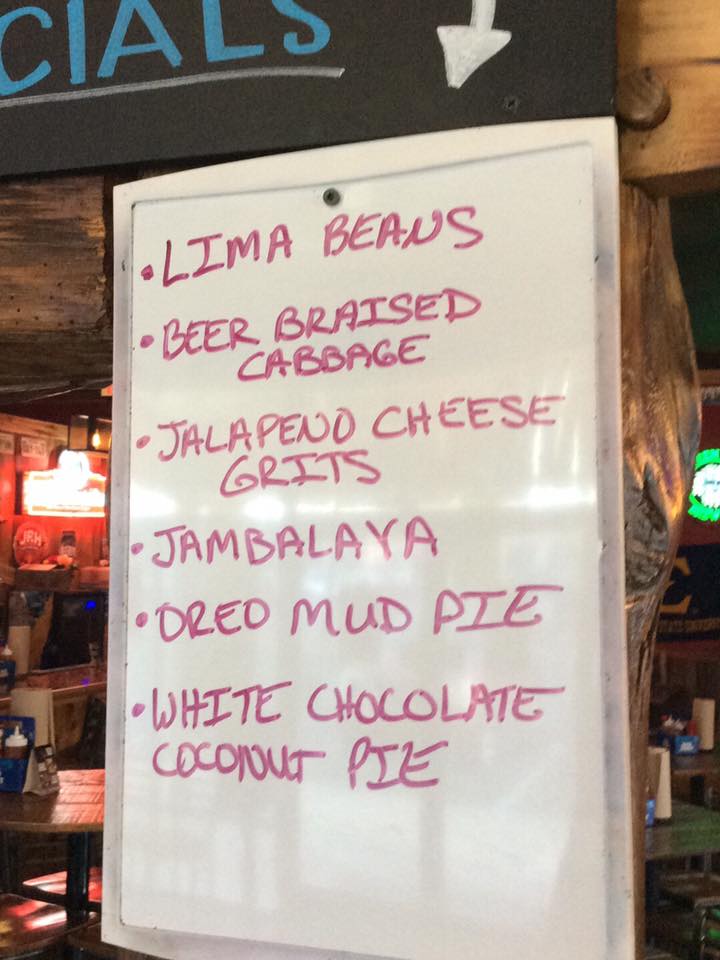 CIALS
• LIMA BEANS
• BEER BRAISED
CABBAGE
• JALAPENO CHEESE
GRITS
• JAMBALAYA
• OREO MUD PIE
• WHITE CHOCOLATE
COCONUT PIE
JRH